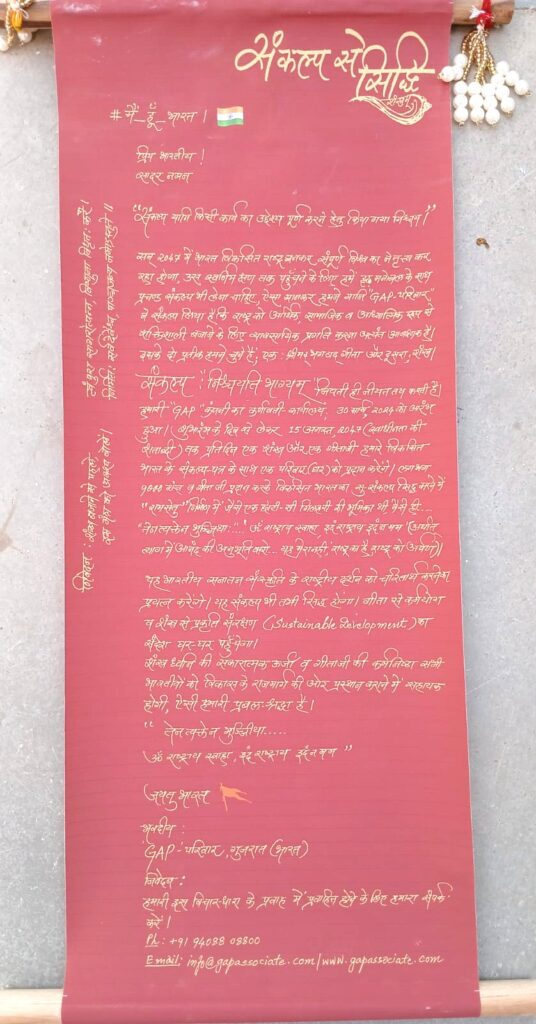 संकल्प से
सिद्धि
#मैं_हूँ_भारत।
प्रिय भारतीय!
सादर नमन
"संकल्प यानि किसी कार्य का उद्देश्य पूर्ण करने हेतु किया गया निश्चय।"
सन 2047 में भारत विकसित राष्ट्र बनकर संपूर्ण विश्व का नेतृत्व कर
रहा होगा, उस स्वर्णिम क्षण तक पहुँचने के लिए हमें दृढ़ मनोबल के साथ
प्रचण्ड संकल्प भी लेना चाहिए, ऐसा मानकर हमने यानि "GAP-परिवार"
ने संकल्प लिया है कि राष्ट्र को आर्थिक, सामाजिक व आध्यात्मिक रूप से
शक्तिशाली बनाने के लिए व्यावसायिक प्रगति करना अत्यंत आवश्यक है।
इसके दो प्रतीक हमने चुने हैं, एक: श्रीमद् भगवद् गीता और दूसरा, शंख।
संकल्प: "निश्चयति भाग्यम्" नियती ही नीयत तय करती है।
हमारी "GAP" कंपनी का कर्णावती कार्यालय, 30 मार्च, 2024 को आरंभ
हुआ। शुभारंभ के दिन से लेकर 15 अगस्त, 2047 (स्वाधीनता की
शताब्दी) तक प्रतिदिन एक शंख और एक गीताजी हमारे विकसित
भारत के संकल्प-पत्र के साथ एक परिवार (घर) को प्रदान करेंगे। लगभग
शंख व गीताजी प्रदान करके विकसित भारत का संकल्प सिद्ध करने में
"रामसेतु" निर्माण में जैसे एक छोटी सी गिलहरी की भूमिका थी वैसे ही...
"तेन त्यक्तेन भुञ्जिथा....." ॐ राष्ट्राय स्वाहा, इदं राष्ट्राय इदं न मम (अर्थात
त्याग में आनंद की अनुभूति करो... यह मेरा नहीं, राष्ट्र का है, राष्ट्र को अर्पण)।
यह भारतीय सनातन संस्कृति के राष्ट्रीय दर्शन को चरितार्थ करने का
प्रयत्न करेंगे। यह संकल्प भी तभी सिद्ध होगा। गीता से कर्मयोग
व शंख से प्रकृति संरक्षण (Sustainable Development) का
संदेश घर-घर पहुँचेगा।
शंख ध्वनि की सकारात्मक ऊर्जा व गीताजी की कर्मनिष्ठा सभी
भारतीयों को विकास के राजमार्ग की ओर प्रस्थान कराने में सहायक
होगी, ऐसी हमारी प्रबल श्रद्धा है।
"तेन त्यक्तेन भुञ्जिथा.....
ॐ राष्ट्राय स्वाहा, इदं राष्ट्राय इदं न मम"
जयतु भारत
भवदीय:
GAP-परिवार, गुजरात (भारत)
निवेदन:
हमारी इस विचार-धारा के प्रवाह में प्रवाहित होने के लिए हमारा संपर्क
करें।
Ph: +91 94088 08800
Email: info@gapassociate.com/www.gapassociate.com